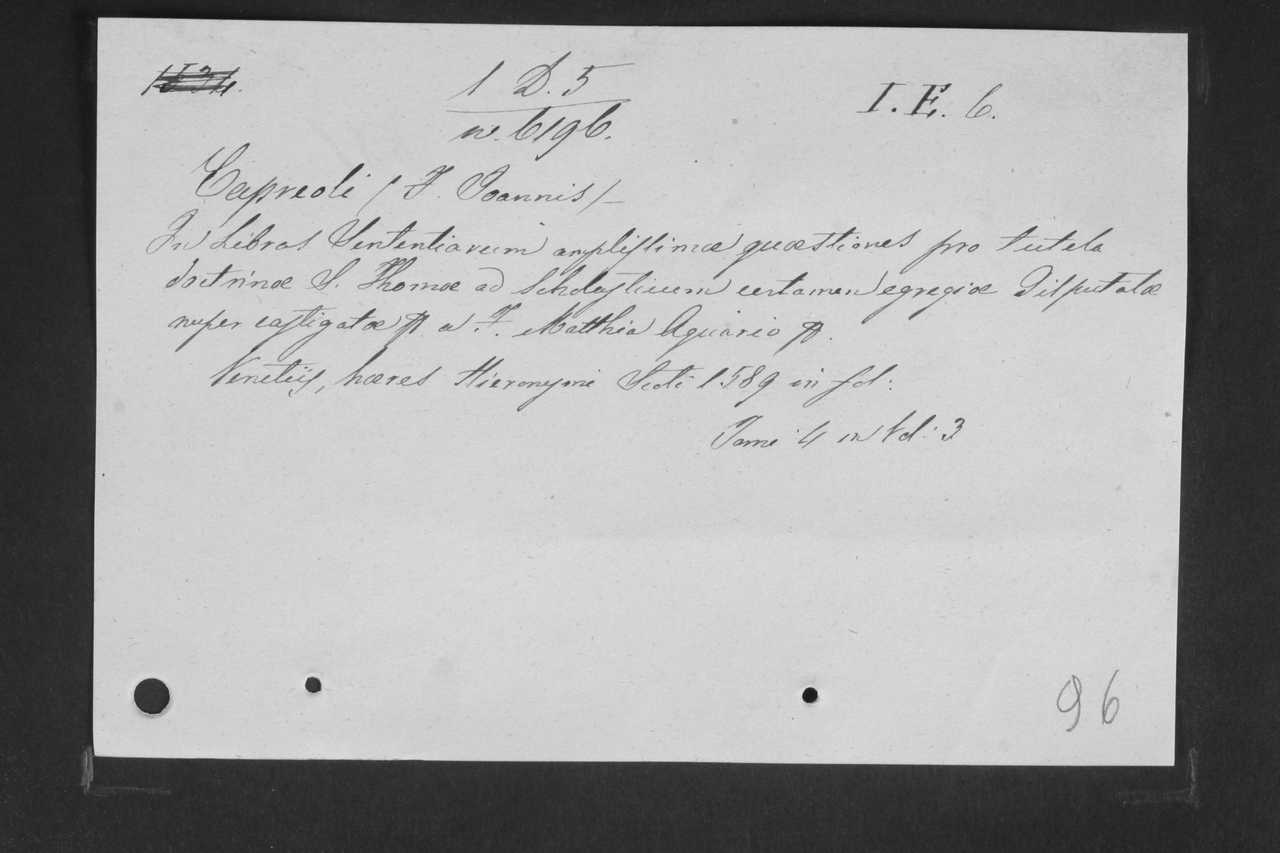 1 D. 5
I. E. 6.
n. 6196.
Capreoli / F. Joannis / –
In Libros Sententiarum amplissimæ quæstiones pro tutela
doctrinæ S. Thomæ ad Scholasticum certamen egregiæ disputatæ
nuper castigatæ a F. Matthia Aquario
Venetiis, hæres Hieronymi Scoti 1589 in fol:
Tomi 4 in Vol: 3
96